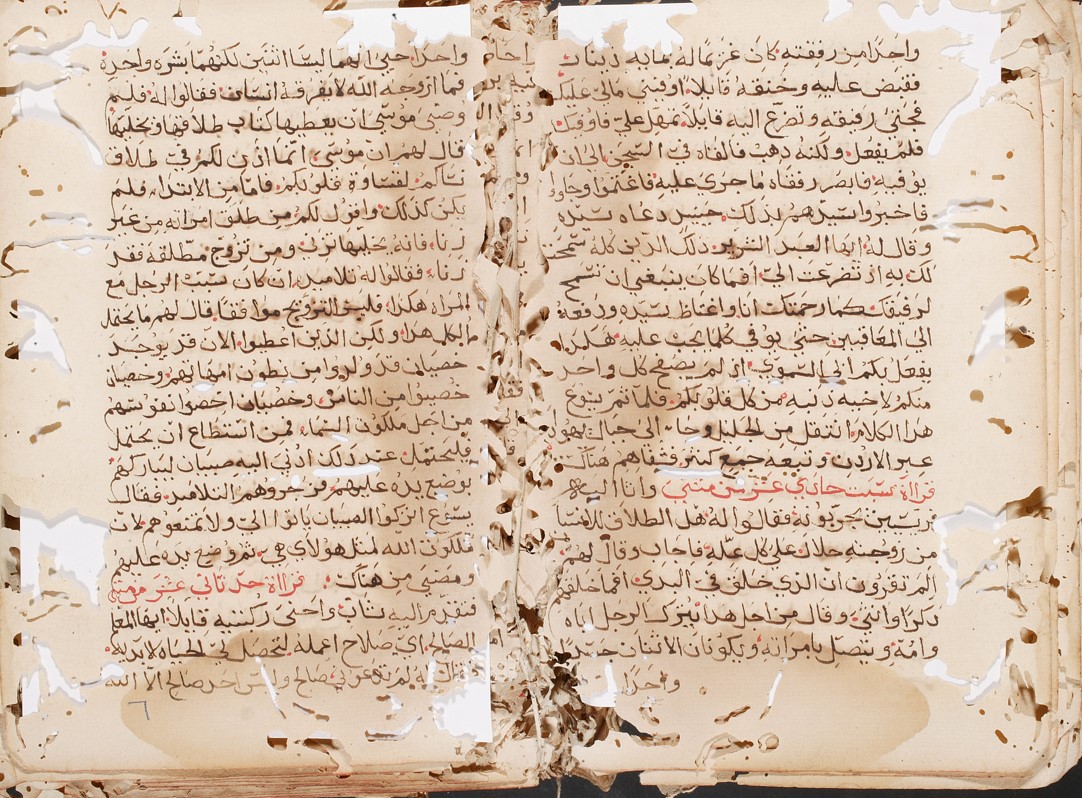 واحدًا من رفقته كان عزيمًا له مايه دينار
فقبض عليه وخنقه قايلًا اوفني مالي عليك
فجثى رفيقه وتضرع اليه قايلًا تمهل علي فاوفيك
فلم يفعل ولكنه ذهب فالقاه في السجن الى ان
يوفيه فابصر رفقاه ما جرى عليه فاغتموا وجاوا
فاخبروا سيدهم بذلك حينيذ دعاه سيده
وقال له ايها العبد الشرير ذلك الدين كله سمحت
لك به اذ تضرعت الي افما كان ينبغي ان تسمح
لرفيقك كما رحمتك انا واغتاظ سيده ودفعه
الى المعاقبين حتى يوفي كلما يجب عليه هكذا
يفعل بكم ابي السموي ان لم يصفح كل واحد
منكم لاخيه ذنبه من كل قلوبكم فلما تم يسوع
هذا الكلام انتقل من الجليل وجا الى جبال يهود
عبر الاردن وتبعه جمع كثير فشفاهم هناك
قراة سبت حادي عشر من متى وانا اليه
فريسين يجربونه فقالوا له هل الطلاق للانسان
من زوجته حلال على كل علة فاجاب وقال لهم
الم تقرون ان الذي خلق في البدي انما خلقهم
ذكرًا وانثى وقال من اجل هذا يترك الرجل اباه
وامه ويتصل بامراته ويكونان الاثنان جسدًا
واحدًا
واحدًا حتى انهما ليسا اثنين لكنهما بشره واحدة
فما ازوجه الله لا يفرقه انسان فقالوا له فلم
وصى موسى ان يعطيها كتاب طلاقها ويخليها
قال لهم ان موسى انما اذن لكم في طلاق
نسآكم لقساوة قلوبكم فاما من الابتداء فلم
يكن كذلك واقول لكم من طلق امراته من غير
زنا فانه يخليها تزني ومن تزوج مطلقة فقد
زناء فقالوا له تلاميذه ان كان سبب الرجل مع
المراة هكذا فليس التزويج موافقًا قال لهم ما يحتمل
الكل هذا ولكن الذين اعطوا الان قد يوجد
خصيان قد ولدوا من بطون امهاتهم وخصيان
خصيوا من الناس وخصيان اخصوا نفوسهم
من اجل ملكوت السماء فمن استطاع ان يحتمل
فليحتمل عند ذلك ادني اليه صبيان ليباركهم
بوضع يده عليهم فزجروهم التلاميذ فقال
يسوع اتركوا الصبيان ياتوا الي ولا تمنعوهم لان
ملكوت الله لمثل هولاي هي ثم وضع يده عليهم
ومضى من هناك قراة حد ثاني عشر من متى
فتقدم اليه شاب واحنى ركبتيه قايلًا ايها المعلم
الصالح اي صلاح اعمله لتحصل لي الحياه الابديه
فقال له لم تدعوني صالح وليس احد صالح الا الله